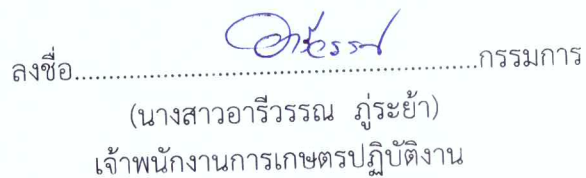 ลงชื่อ.................อารีวรรณ.................กรรมการ
(นางสาวอารีวรรณ ภู่ระย้า)
เจ้าพนักงานการเกษตรปฏิบัติงาน